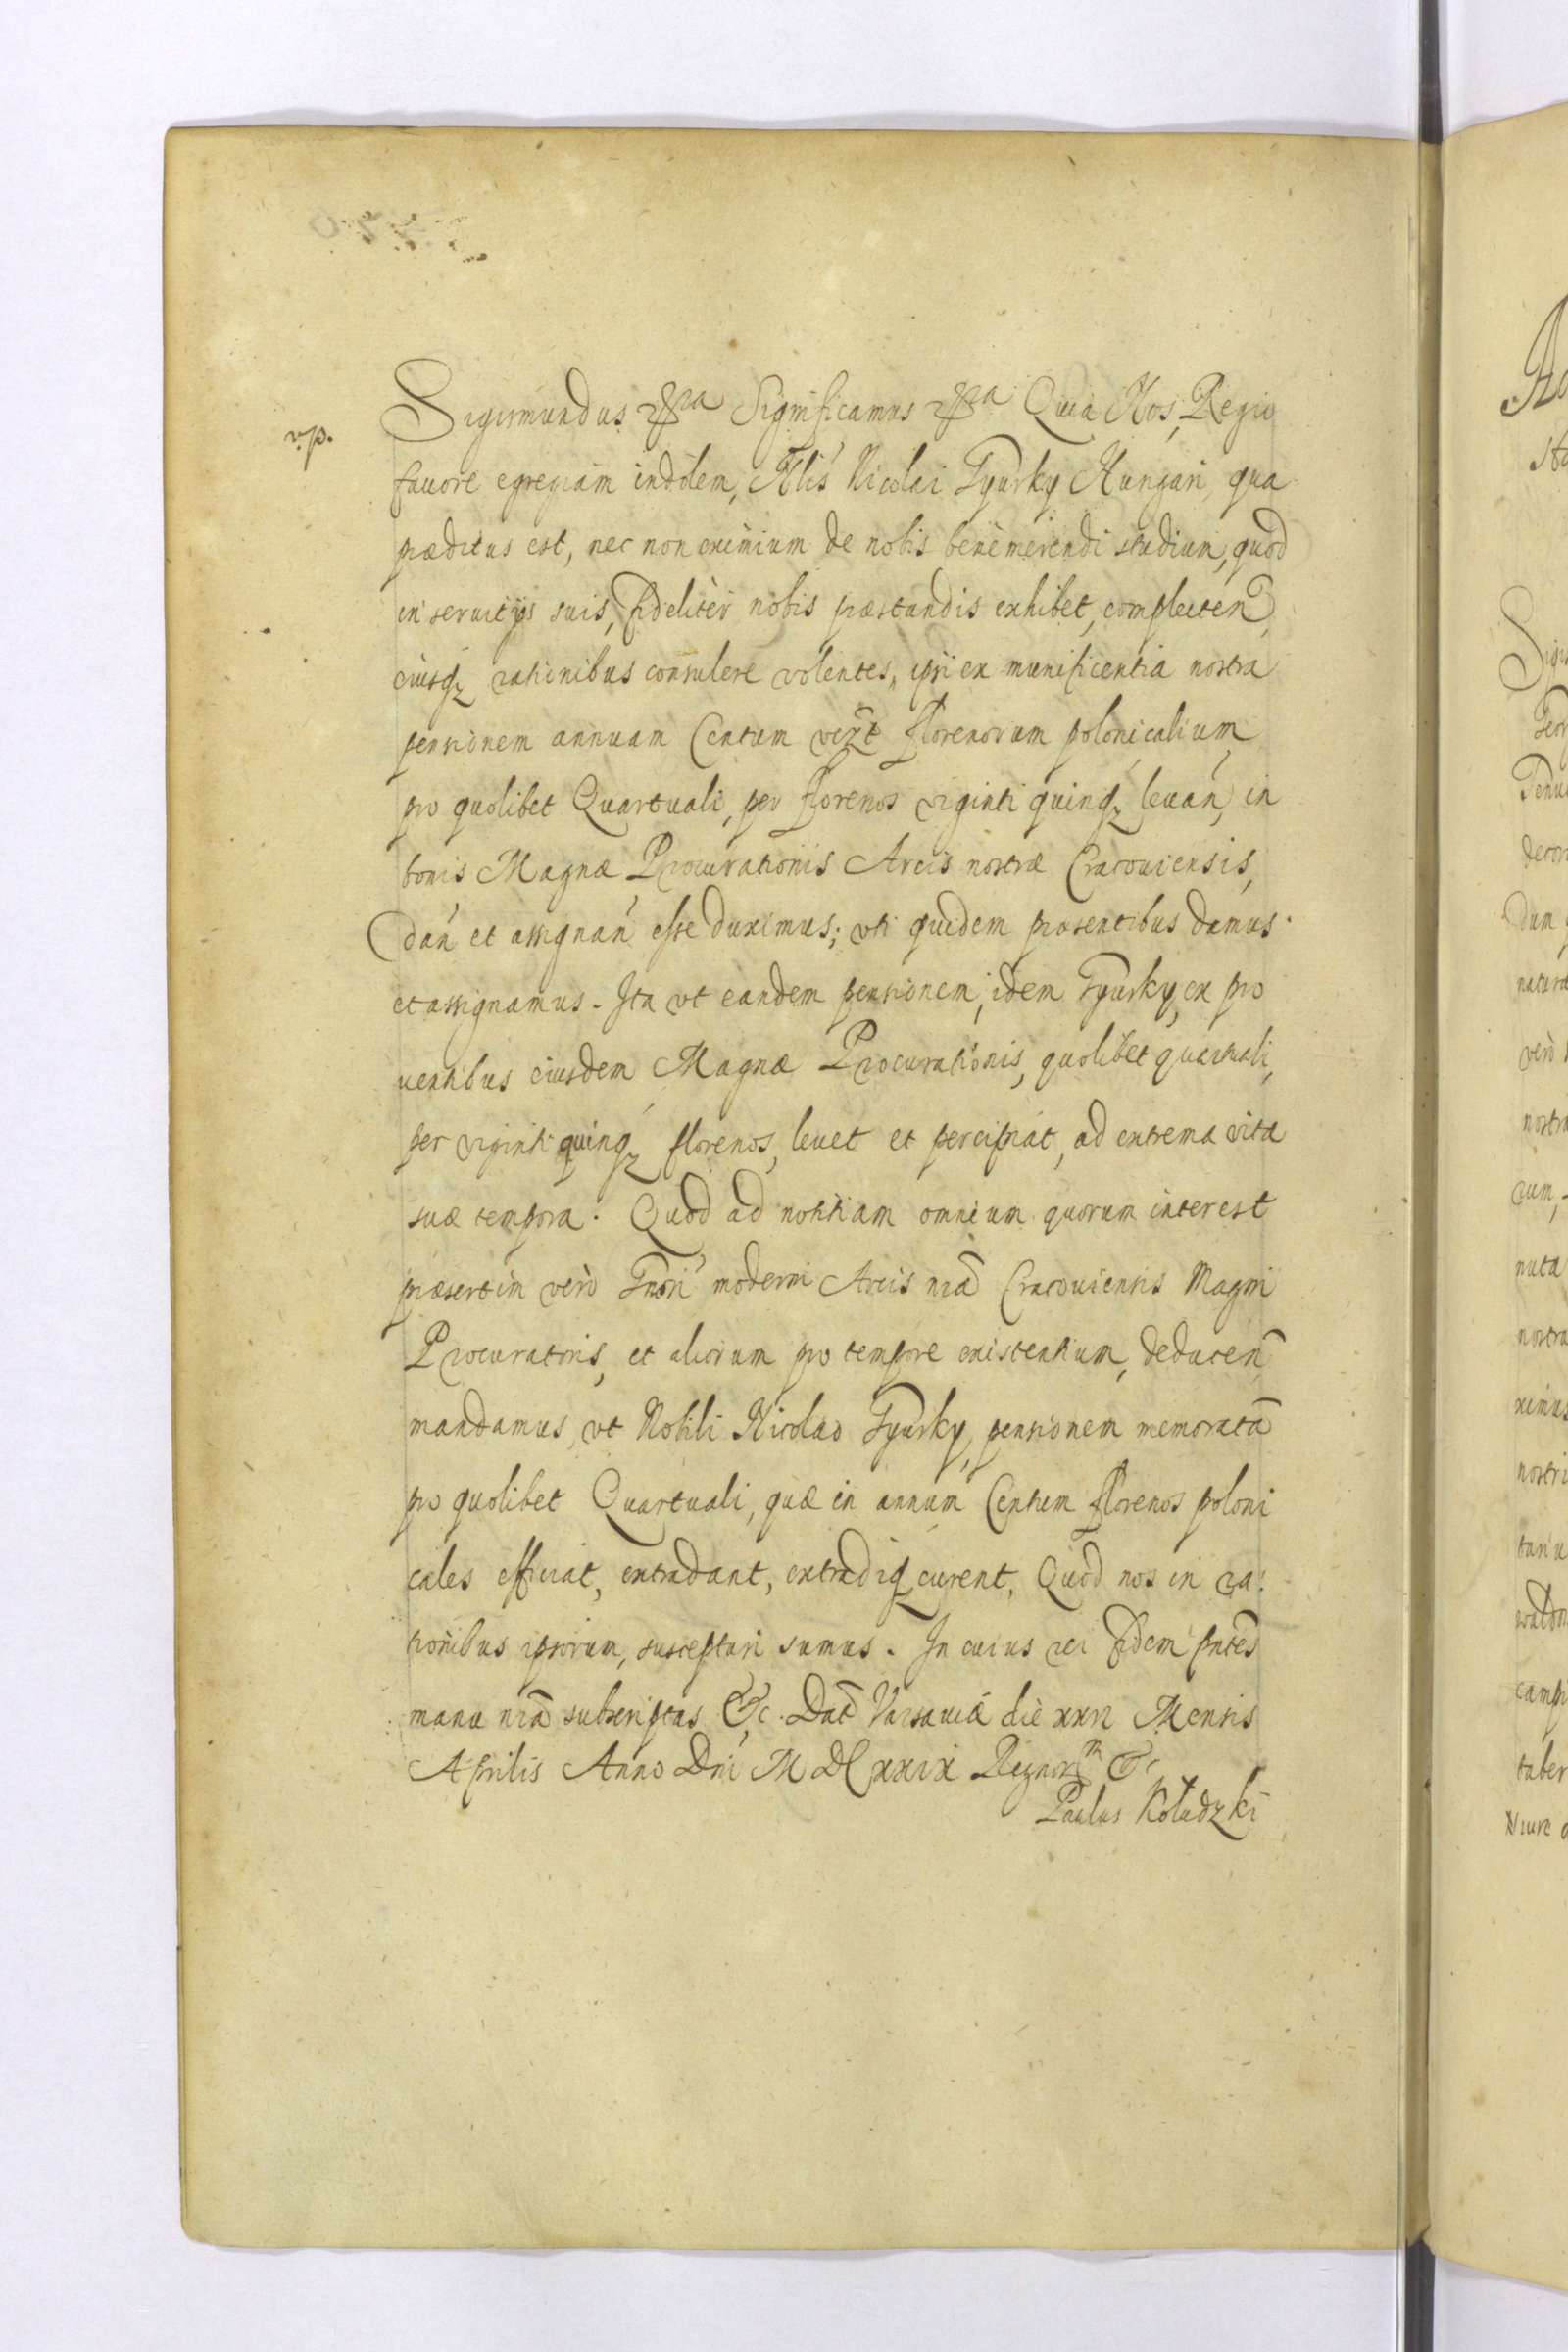 v.p.
Sigismundus &ra Significamus &ra Quia Nos, Regio
fauore egregiam indolem, Nlis Nicolai Tyursky Hungari, qua
præditus est, nec non eximium de nobis benèmerendi studium, quod
in seruitijs suis, fidelitèr nobis præstandis exhibet, complecten̄,
eiusq; rationibus consulere volentes, ipsi ex munificentia nostra
pensionem annuam Centum florenorum polonicalium
pro quolibet Quartuali, per florenos viginti quinq; leuan̄, in
bonis Magnæ Procurationis Arcis nostræ Cracouiensis,
dan̄ et assignan̄ esse duximus; vti quidem præsentibus damus
et assignamus. Ita vt eandem pensionem, idem Tyursky, ex pro
uentibus eiusdem Magnæ Procurationis, quolibet quartuali,
per viginti quinq; florenos, leuet et percipiat, ad extrema vitæ
suæ tempora. Quod ad notitiam omnium quorum interest
præsertim verò Gnsi moderni Arcis nrā Cracouiensis Magni
Procuratoris, et aliorum pro tempore existentium, deducen̄
mandamus, vt Nobili Nicolao Tyursky, pensionem memoratā
pro quolibet Quartuali, quæ in annum Centum florenos poloni
cales efficiat, extradant, extradiq; curent, Quod nos in ra
tionibus ipsorum, suscepturi sumus. In cuius rei fidem pntēs
manu nrā subscriptas &c. Dat̄ Varsauiæ die xxvi Mensis
Aprilis Anno Dni M DC xxix Regnorm &c
Paulus Kołudzki